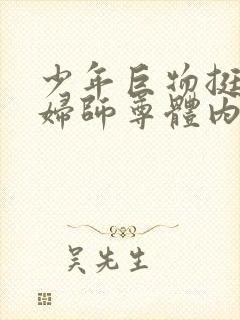 少年巨物挺
婦師尊體內
吴先生